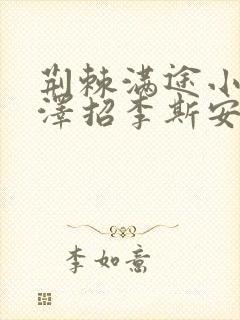 荆棘满途小
泽招李斯安
李如意